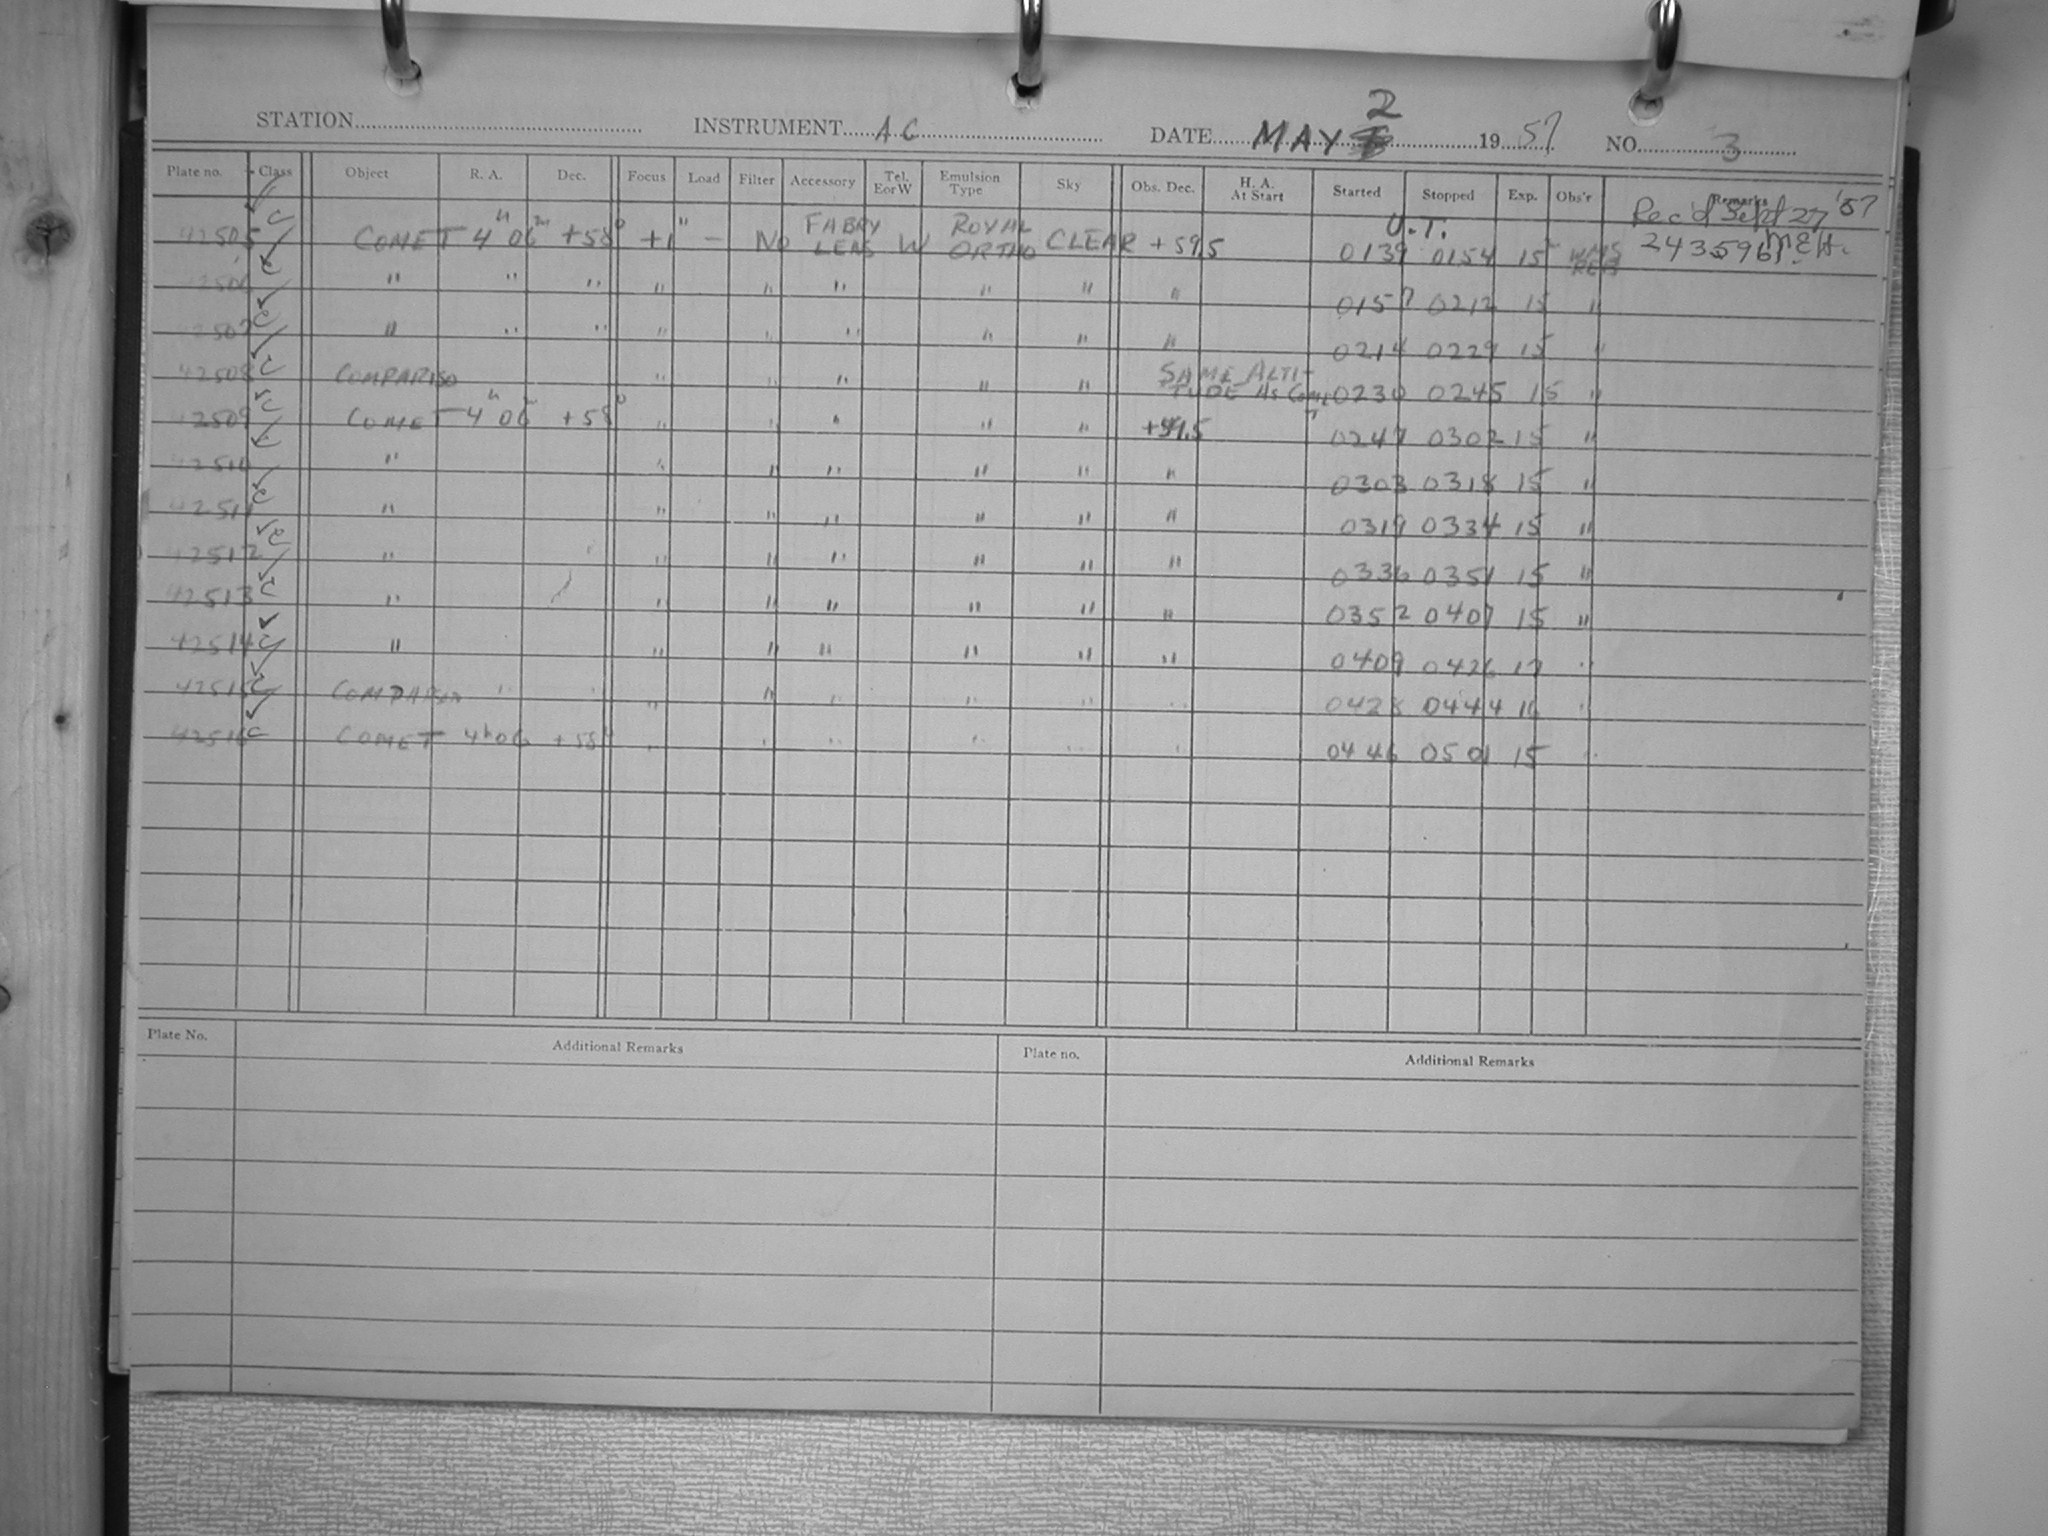 STATION INSTRUMENT AC DATE MAY 2 1957 NO. 3
Plate no. Class Object R. A. Dec. Focus Load Filter Accessory Tel. E or W Emulsion Type Sky Obs. Dec. H. A. At Start Started Stopped Exp. Obs'r Remarks
U.T. Rec'd Sept 27 '57
42505 C COMET 4h 06m +58° +1" - No FABRY LENS W ROYAL ORTHO CLEAR +59.5 0139 0154 15 2435961 MEH.
2506 C " " " " " " " " " 0157 0212 15 "
2507 C " " " " " " " " " 0214 0229 15 "
42508 C COMPARISO " " " " " SAME ALTITUDE AS COMET 0230 0245 15 "
42509 C COMET 4h 06 +58° " " " " " +59.5 0247 0302 15 "
42510 C " " " " " " " 0303 0318 15 "
42511 C " " " " " " " 0319 0334 15 "
42512 C " " " " " " " 0336 0351 15 "
42513 C " " " " " " " 0352 0407 15 "
42514 C " " " " " " " 0409 0426 17 "
42515 C " " " " " " " " 0428 0444 16 "
42516 C COMET 4h06 +58° " " " " " " 0446 0501 15 "
Plate No. Additional Remarks Plate no. Additional Remarks